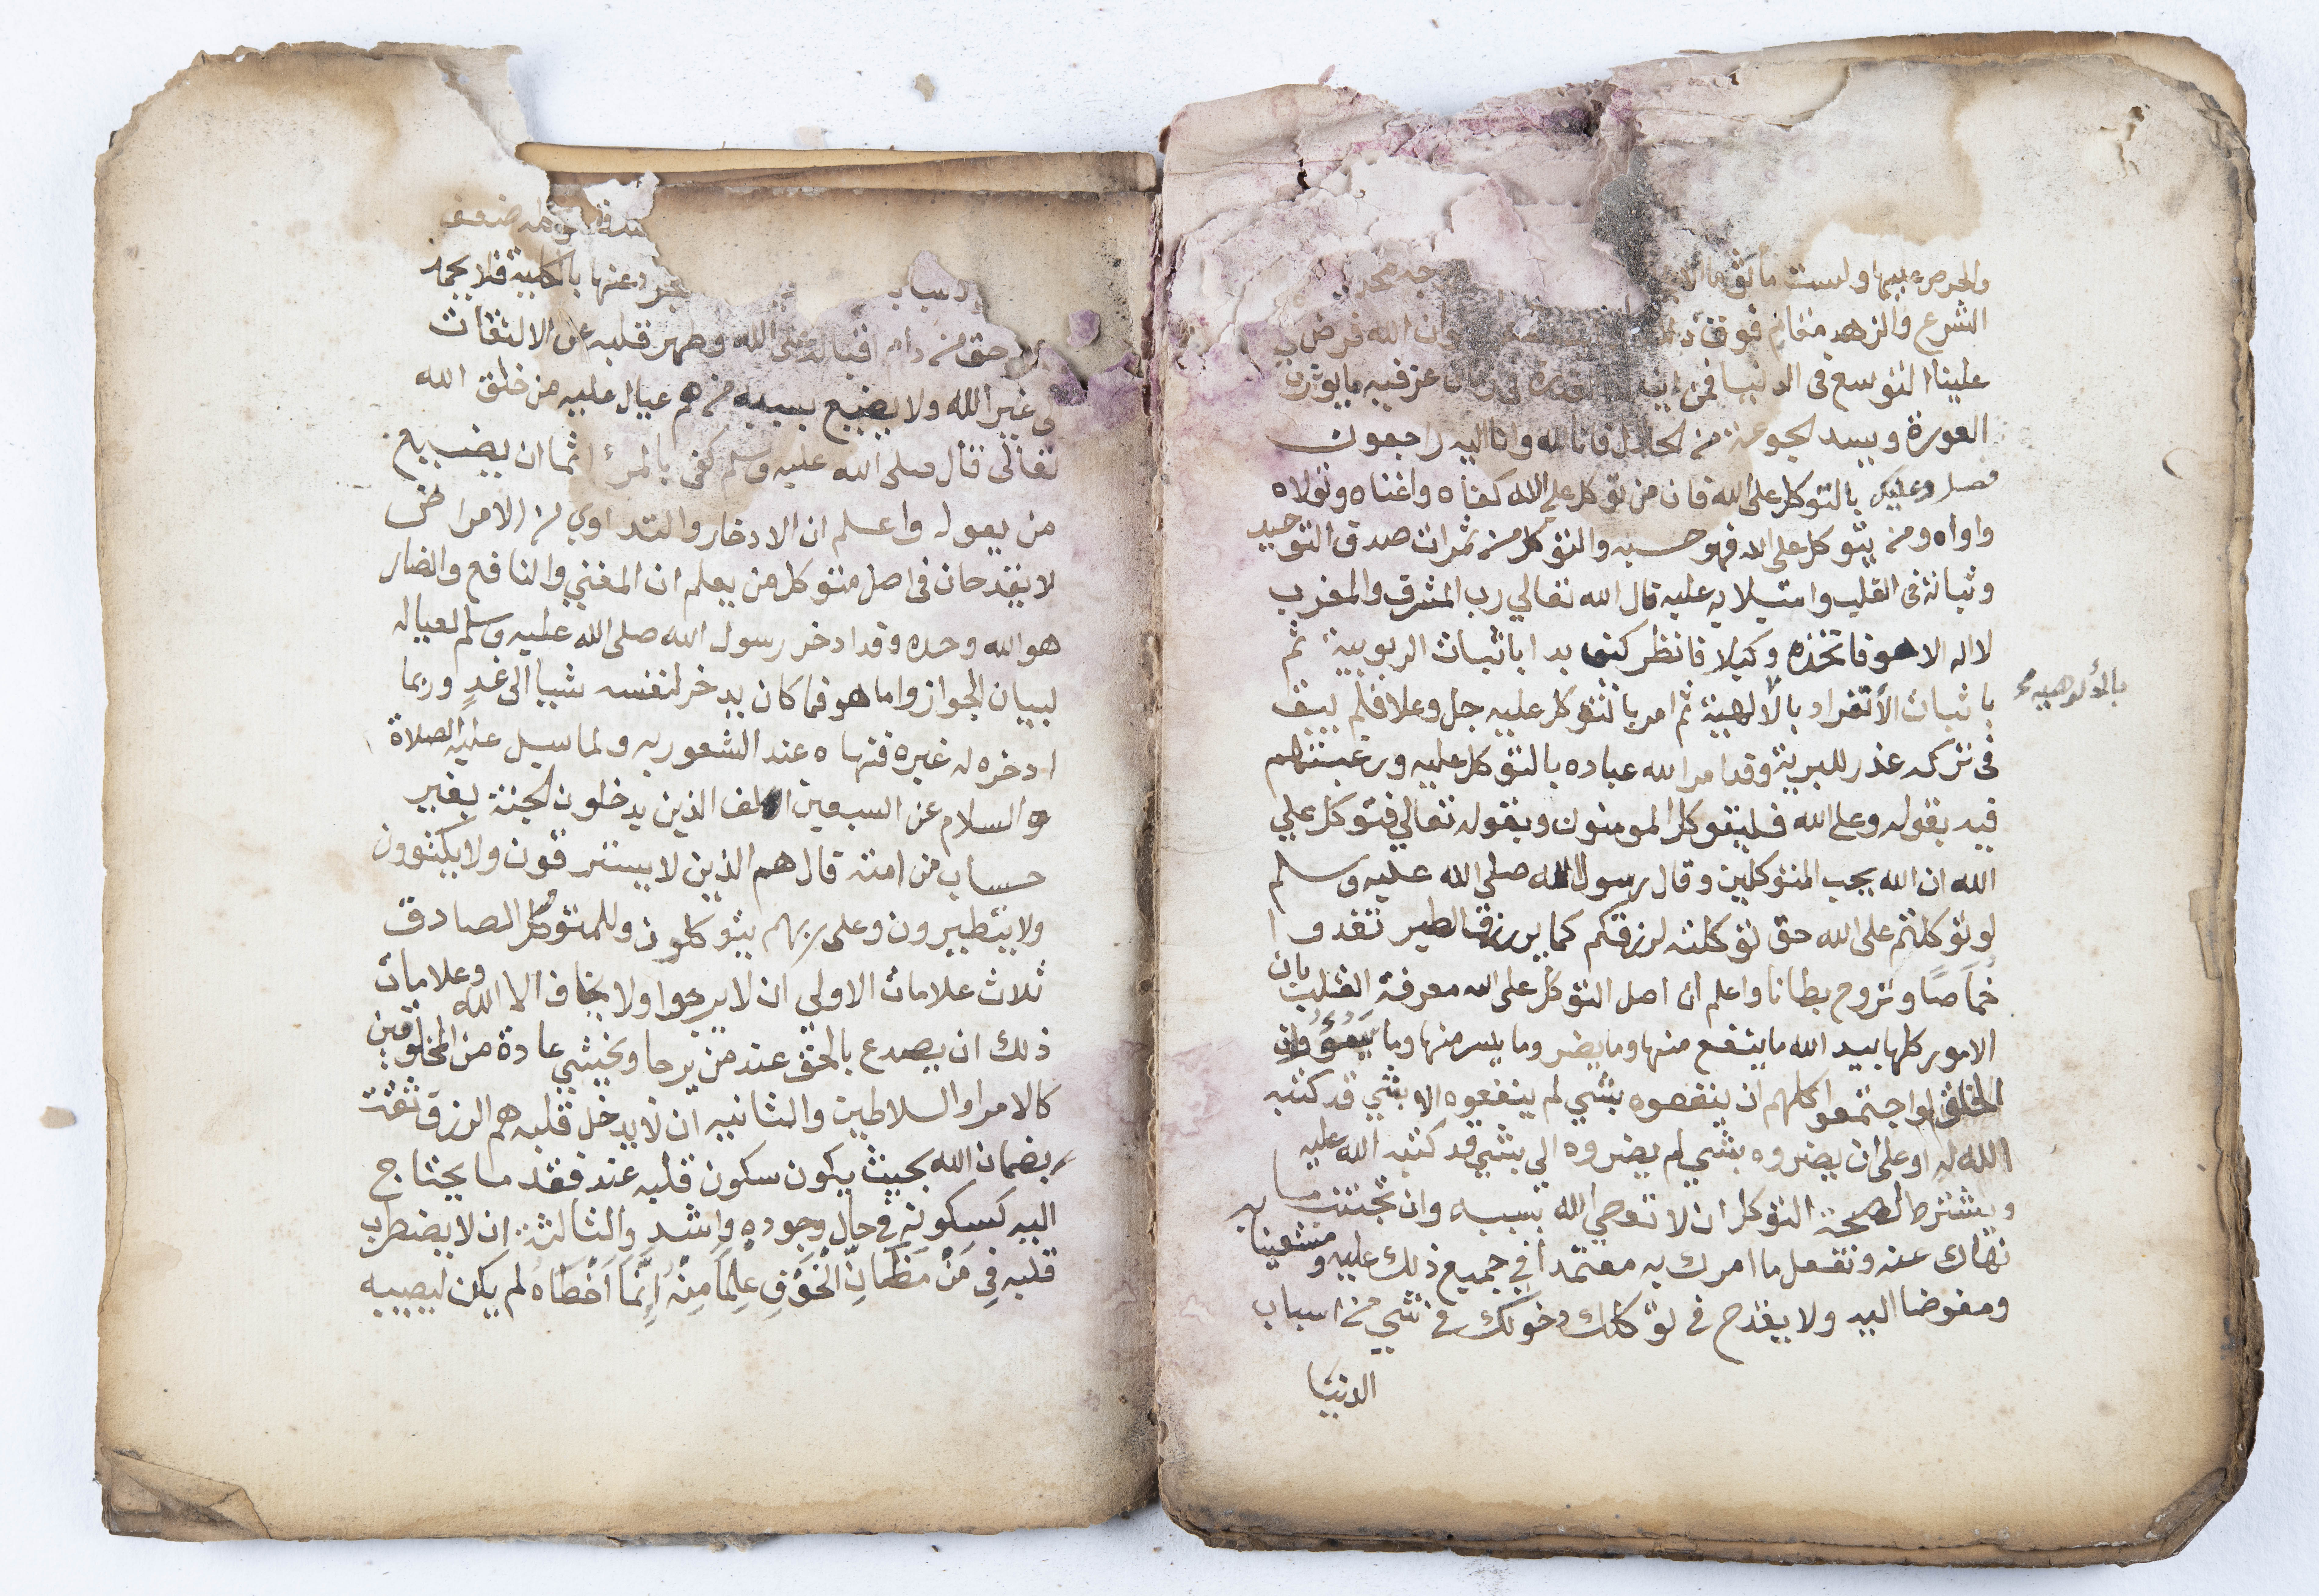 والحرص عليها ولست
الشرع والزهد مقام فوق ذلك وان الله فرض
علينا التوسع في الدنيا فمن عز فيه ما يواري
العورة ويسد الجوعة من الحلال فانا لله وانا اليه راجعون
فصل وعليك بالتوكل على الله فان من توكل على الله كفاه واغناه وتولاه
واواه ومن يتوكل على الله فهو حسبه والتوكل من ثمرات صدق التوحيد
وثباته في القلب واستيلايه عليه قال الله تعالي رب المشرق والمغرب
لا اله الا هو فاتخذه وكيلا فانظر كيف بدا باثبات الربوبية ثم
باثبات الأنفراد بالالهية ثم امر بالتوكل عليه جل وعلا فلم يبق
بالألوهيه
في تركه عذر للبرية وقد امر الله عباده بالتوكل عليه ورغبتهم
فيه بقوله وعلى الله فليتوكل المومنون وبقوله تعالي فتوكل علي
الله ان الله يحب المتوكلين وقال رسول الله صلى الله عليه وسلم
لو توكلتم على الله حق توكلته لرزقكم كما يرزق الطير تغدوا
خماصًا وتروح بطانا واعلم ان اصل التوكل على الله معرفة القلب بان
الامور كلها بيد الله ما ينفع منها وما يضر وما يسر منها وما وان
الخلق لو اجتمعوا كلهم ان ينفعوه بشي لم ينفعوه الا بشي قد كتبه
الله له او على ان يضروه بشي لم يضروه الي بشي قد كتبه الله عليه
ويشترط لصحة التوكل ان لا تعصي الله بسببه وان تجتنب ما
نهاك عنه وتفعل ما امرك به معتمدا في جميع ذلك عليه ومستعينا به
ومفوضا اليه ولا يقدح في توكلك دخولك في شي من اسباب
الدنيا
ضعف
عنها بالكلية فلا يجمد
حق من دام اقباله على الله وطهر قلبه عن الالتفات
لى غير الله ولا يضيع بسببه من هم عيال عليه من خلق الله
تعالى قال صلى الله عليه وسلم كفى بالمرء اثما ان يضييع
من يعول واعلم ان الادخار والتداوي من الامراض
لا يقدحان في اصل متوكل من يعلم ان المغني والنافع والضار
هو الله وحده وقد ادخر رسول الله صلى الله عليه وسلم لعياله
لبيان الجواز واما هو فما كان يدخر لنفسه شيا الى غدٍ وربما
ادخره له غيره فنهاه عند الشعور به ولما سيل عليه الصلاة
والسلام عن السبعين الف الذين يدخلون الجنة بغير
حساب من امته قال هم الذين لا يسترقون ولا يكتوون
ولا يتطيرون وعلى ربهم يتوكلون وللمتوكل الصادق
ثلاث علامات الاولى ان لا يرجوا ولا يخاف الا الله وعلامات
ذلك ان يصدع بالحق عند من يرجا ويخشي عادة من المخلوقين
كالامرا والسلاطين والثانيه ان لا يدخل قلبه هم الرزق ثقت
بضمان الله بحيث يكون سكون قلبه عند فقد ما يحتاج
اليه كسكونه في حال وجوده واشد والثالثة ان لا يضطرب
قلبه فِي مَنْ مَظَانِّ الْخَوْفِ عِلْمًا مِنْهُ إِنَّمَا اَخْطَاهُ لم يكن ليصيبه